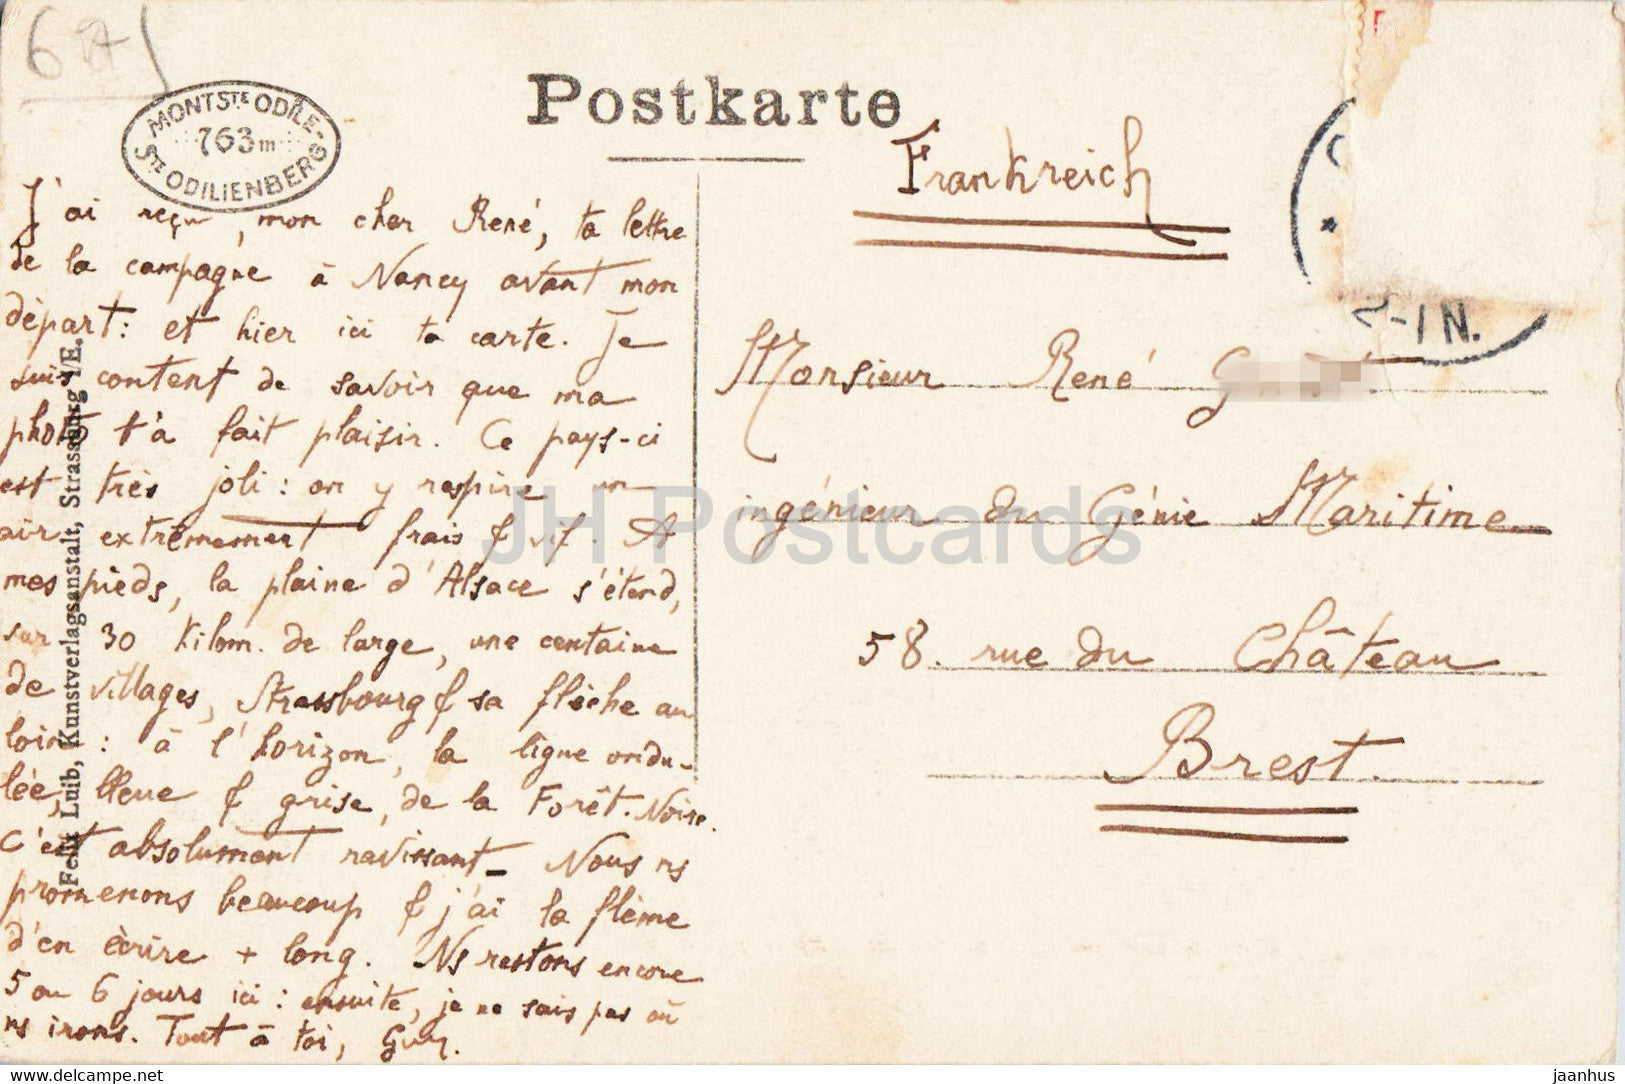 67
Postkarte
MONT STE ODILE
763 m
STE ODILIENBERG
Frankreich
2-1 N.
J'ai reçu, mon cher René, ta lettre
de la campagne à Nancy avant mon
départ : et hier ici ta carte. Je
suis content de savoir que ma
photo t'a fait plaisir. Ce pays-ci
est très joli : on y respire un
air extrêmement frais & vif. A
mes pieds, la plaine d'Alsace s'étend,
sur 30 kilom. de large, une centaine
de villages, Strassbourg & sa flèche au
loin : à l'horizon, la ligne ondu-
lée, bleue & grise, de la Forêt-Noire.
C'est absolument ravissant_ Nous ns
promenons beaucoup & j'ai la flème
d'en écrire + long. Ns restons encore
5 ou 6 jours ici : ensuite, je ne sais pas où
ns irons. Tout à toi, Guy.
Monsieur René G
ingénieur du Génie Maritime
58. rue du Château
Brest.
Felix Luib, Kunstverlagsanstalt, Strassburg i/E.
JH Postcards
www.delcampe.net
jaanhus